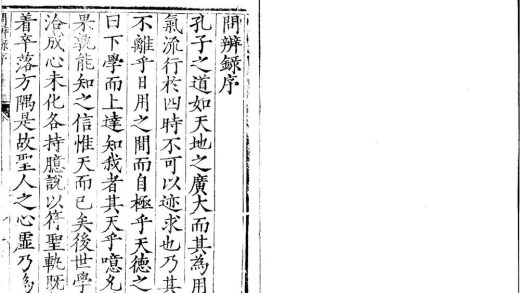 問辨錄序
孔子之道如天地之廣大而其為用
氣流行於四時不可以迹求也乃其
不離乎日用之間而自極乎天德之
曰下學而上達知我者其天乎噫允
果孰能知之信惟天而已矣後世學
洽成心未化各持臆說以符聖軌既
着卒落方隅是故聖人之心虛乃為
問辨錄序